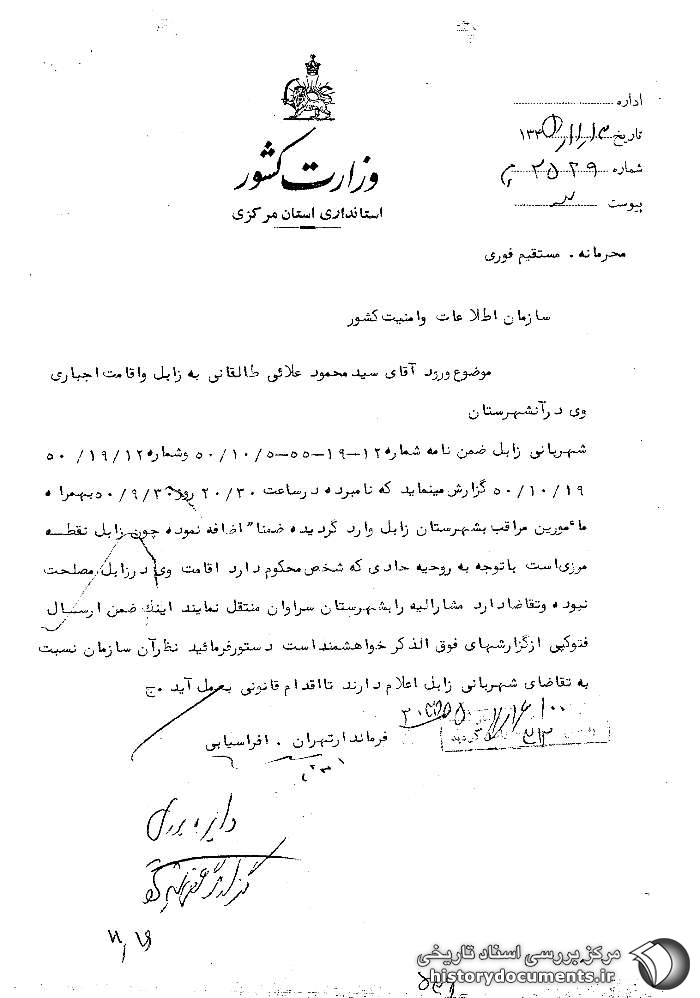 وزارت کشور
استانداری استان مرکزی
اداره
تاریخ
شماره ۲۵۲۹ م
پیوست
محرمانه . مستقیم فوری
سازمان اطلاعات وامنیت کشور
موضوع ورود آقای سید محمود علائی طالقانی به زابل واقامت اجباری
وی درآنشهرستان
شهربانی زابل ضمن نامه شماره ۱۲-۱۹-۵۵-۵۰/۱۰/۵ وشماره ۵۰/۱۹/۱۲
۵۰/۱۰/۱۹ گزارش مینماید که نامبرده درساعت ۲۰/۳۰ روز ۵۰/۹/۳۰ بهمراه
مأمورین مراقب بشهرستان زابل وارد گردیده ضمنا" اضافه نموده چون زابل نقطه
مرزی است باتوجه به روحیه حادی که شخص محکوم دارد اقامت وی درزابل مصلحت
نبوده وتقاضا دارد مشارالیه رابشهرستان سراوان منتقل نمایند اینک ضمن ارسال
فتوکپی ازگزارشهای فوق الذکر خواهشمند است دستورفرمائید نظرآن سازمان نسبت
به تقاضای شهربانی زابل اعلام دارند تااقدام قانونی بعمل آید .ج
فرماندار تهران . افراسیابی
دایره بررسی
مرکز بررسی اسناد تاریخی
historydocuments.ir